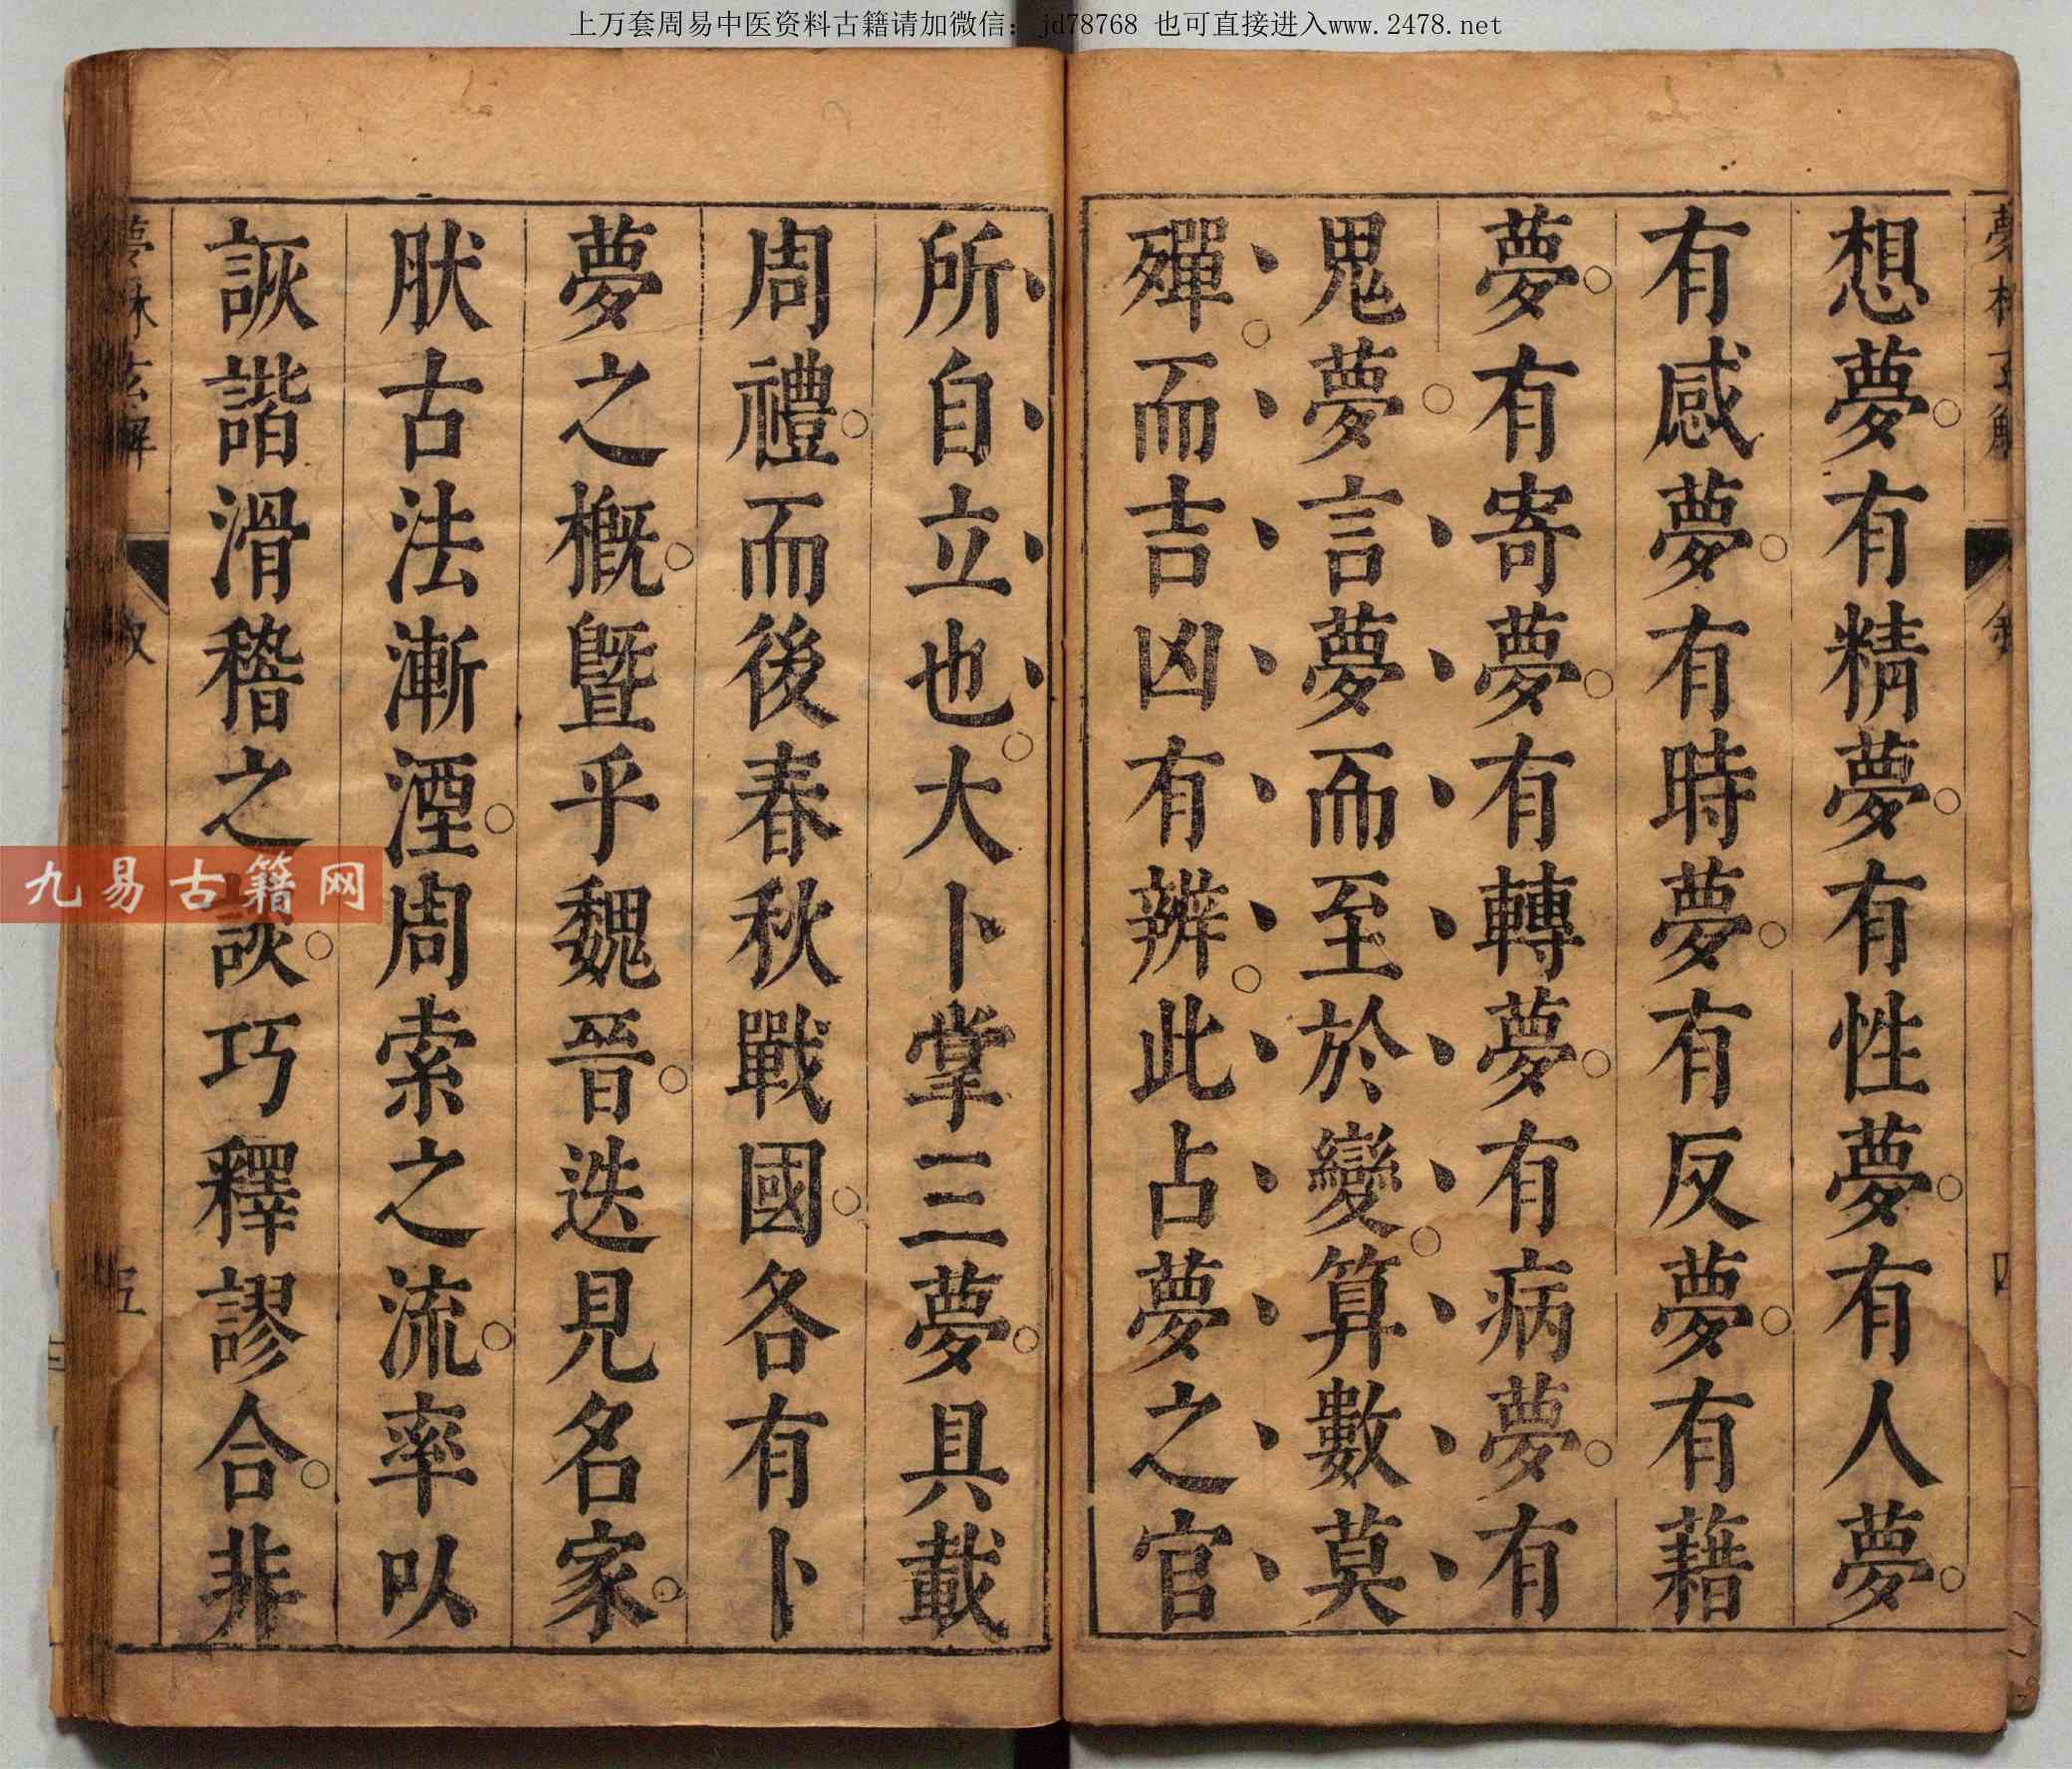 上万套周易中医资料古籍请加微信：jd78768 也可直接进入www.2478.net
想夢有精夢有性夢有人夢
有感夢有時夢有反夢有藉
夢有寄夢有轉夢有病夢有
鬼夢言夢而至於變算數莫
殫而吉凶有辨此占夢之官
所自立也大卜掌三夢具載
周禮而後春秋戰國各有卜
夢之概曁乎魏晉迭見名家
肰古法漸湮周索之流率以
詼諧滑稽之談巧釋謬合非
九易古籍网